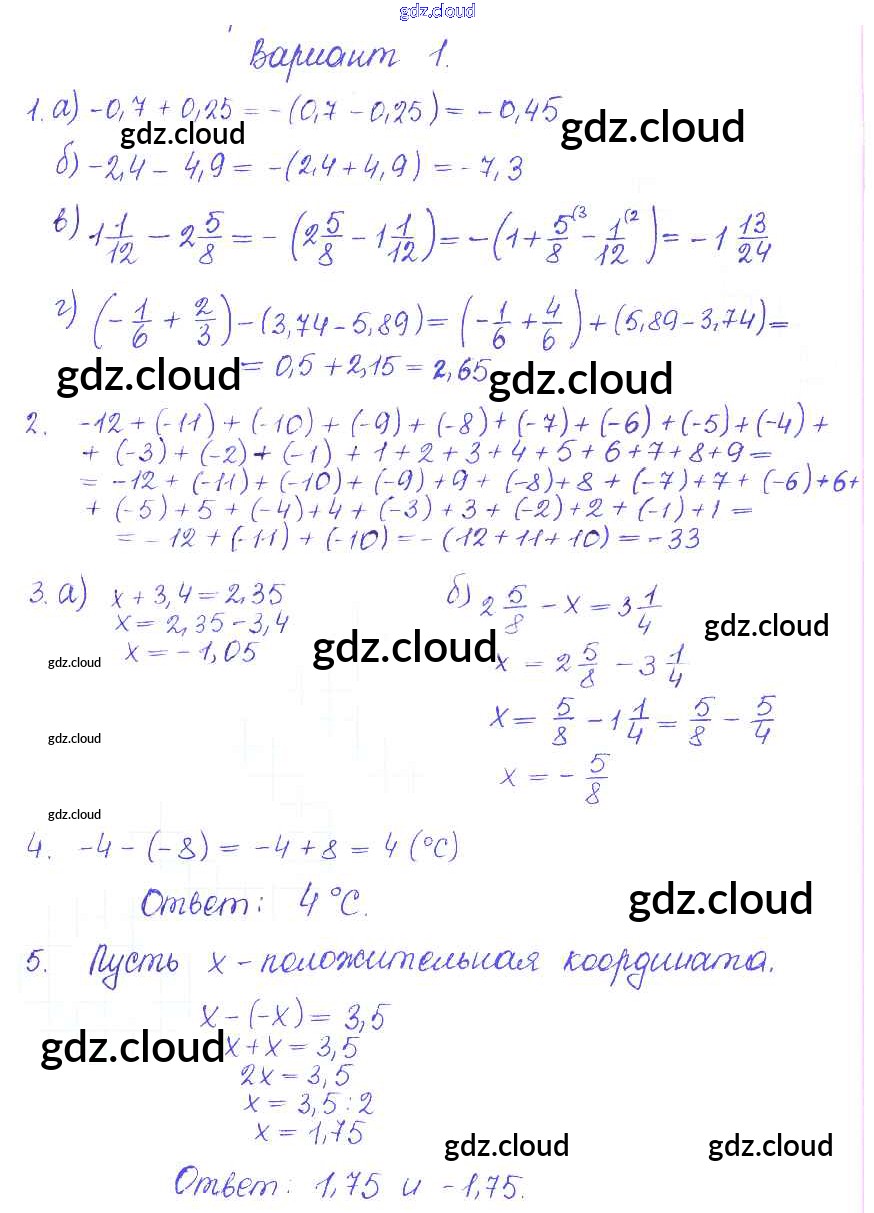 gdz.cloud
Вариант 1.
1. а) -0,7 + 0,25 = -(0,7 - 0,25) = -0,45
gdz.cloud gdz.cloud
б) -2,4 - 4,9 = -(2,4 + 4,9) = -7,3
в) 1 1/12 - 2 5/8 = -(2 5/8 - 1 1/12) = -(1 + 5/8 (3 - 1/12 (2) = -1 13/24
г) (-1/6 + 2/3) - (3,74 - 5,89) = (-1/6 + 4/6) + (5,89 - 3,74) =
gdz.cloud = 0,5 + 2,15 = 2,65 gdz.cloud
2. -12 + (-11) + (-10) + (-9) + (-8) + (-7) + (-6) + (-5) + (-4) +
+ (-3) + (-2) + (-1) + 1 + 2 + 3 + 4 + 5 + 6 + 7 + 8 + 9 =
= -12 + (-11) + (-10) + (-9) + 9 + (-8) + 8 + (-7) + 7 + (-6) + 6 +
+ (-5) + 5 + (-4) + 4 + (-3) + 3 + (-2) + 2 + (-1) + 1 =
= -12 + (-11) + (-10) = -(12 + 11 + 10) = -33
3. а) x + 3,4 = 2,35
x = 2,35 - 3,4
x = -1,05
б) 2 5/8 - x = 3 1/4
gdz.cloud
gdz.cloud
x = 2 5/8 - 3 1/4
gdz.cloud
x = 5/8 - 1 1/4 = 5/8 - 5/4
gdz.cloud
x = -5/8
gdz.cloud
4. -4 - (-8) = -4 + 8 = 4 (°C)
Ответ: 4 °C.
gdz.cloud
5. Пусть x - положительная координата.
x - (-x) = 3,5
gdz.cloud
x + x = 3,5
2x = 3,5
x = 3,5 : 2
x = 1,75
gdz.cloud gdz.cloud
Ответ: 1,75 и -1,75.